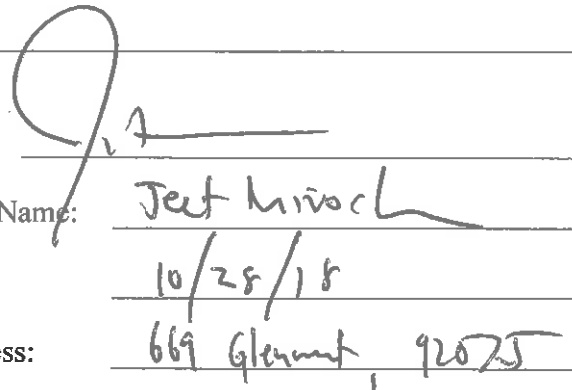 Name: Jeet Minoch
10/28/18
ess: 669 Glenmont, 92075